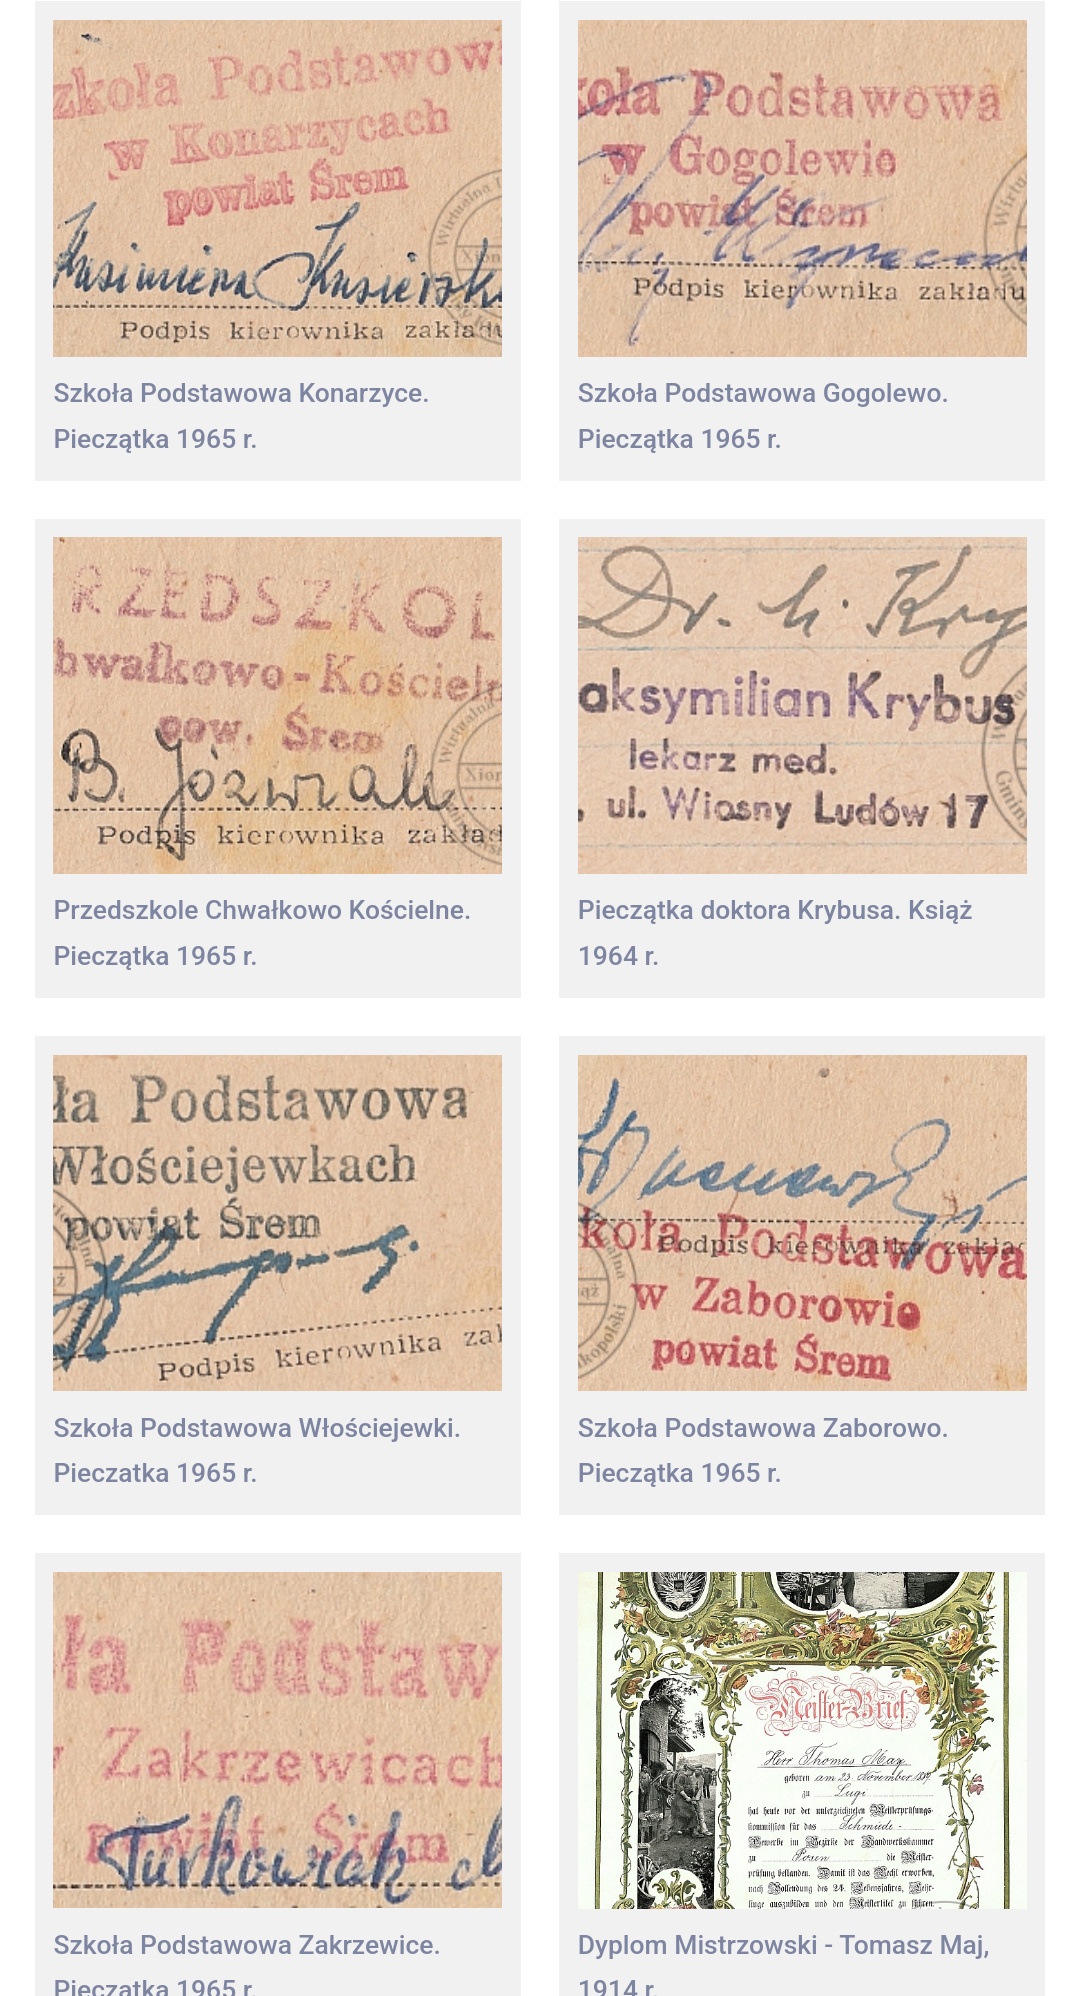 zkoła Podstawowa
w Konarzycach
powiat Śrem
Podpis kierownika zakładu
Szkoła Podstawowa Konarzyce.
Pieczątka 1965 r.
koła Podstawowa
w Gogolewie
powiat Śrem
Podpis kierownika zakładu
Szkoła Podstawowa Gogolewo.
Pieczątka 1965 r.
RZEDSZKOL
hwałkowo-Kościeln
pow. Śrem
B. Jóźwiak
Podpis kierownika zakład
Przedszkole Chwałkowo Kościelne.
Pieczątka 1965 r.
Dr. h. Kry
aksymilian Krybus
lekarz med.
, ul. Wiosny Ludów 17
Pieczątka doktora Krybusa. Książ
1964 r.
ła Podstawowa
Włościejewkach
powiat Śrem
Podpis kierownika zak
Szkoła Podstawowa Włościejewki.
Pieczatka 1965 r.
Podpis kierownika zakład
koła Podstawowa
w Zaborowie
powiat Śrem
Szkoła Podstawowa Zaborowo.
Pieczątka 1965 r.
ła Podstaw
Zakrzewicach
powiat Śrem
Turkowiak
Szkoła Podstawowa Zakrzewice.
Pieczątka 1965 r.
Meister-Brief.
Herr Thomas May
geboren am 23. November
zu Lugi
hat heute vor der unterzeichneten Meisterprüfungs-
kommission für das Schmiede-
Gewerbe im Bezirke der Handwerkskammer
zu Posen die Meister-
prüfung bestanden. Damit ist das Recht erworben,
nach Vollendung des 24. Lebensjahres, Lehr-
linge auszubilden und den Meistertitel zu führen.
Dyplom Mistrzowski - Tomasz Maj,
1914 r.